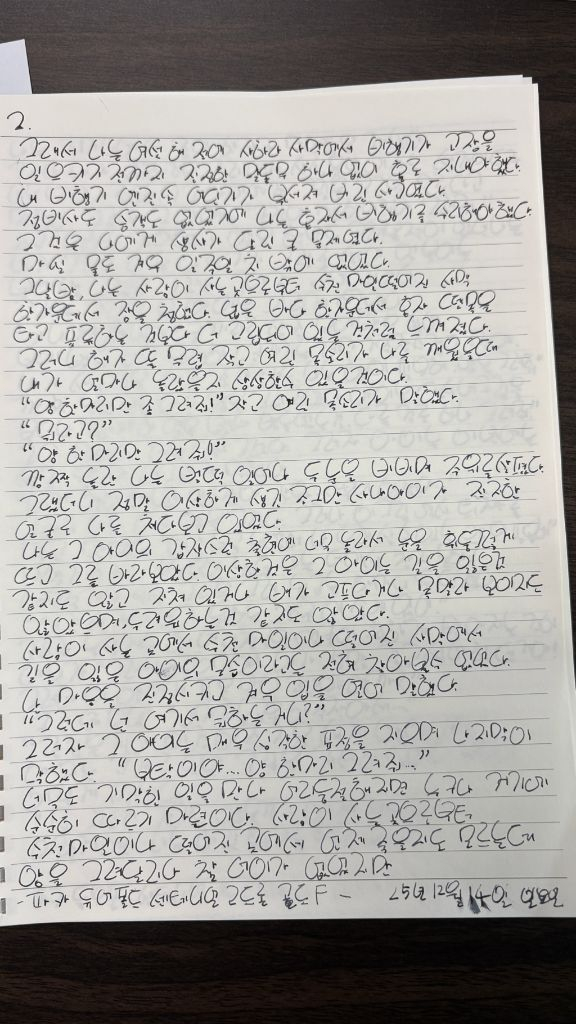 2.
그래서 나는 여섯 해 전에 사하라 사막에서 비행기가 고장을
일으키기 전까지 진정한 말동무 하나 없이 홀로 지내야 했다.
내 비행기 엔진 속 어딘가가 부서져 버린 사고였다.
정비사도 승객도 없었기에 나는 혼자서 비행기를 수리해야 했다.
그것은 나에게 생사가 달린 큰 문제였다.
마실 물도 겨우 일주일 치 밖에 없었다.
그날밤, 나는 사람이 사는 곳으로부터 수천 마일 떨어진 사막
한가운데에서 잠을 청했다. 넓은 바다 한가운데에서 혼자 뗏목을
타고 표류하는 것보다 더 고립되어 있는 것처럼 느껴졌다.
그러니 해가 뜰 무렵 작고 여린 목소리가 나를 깨웠을때
내가 얼마나 놀랐을지 상상할수 있을것이다.
“양 한마리만 좀 그려줘!” 작고 여린 목소리가 말했다.
“뭐라고?”
“양 한 마리만 그려줘!”
깜짝 놀란 나는 벌떡 일어나 두 눈을 비비며 주위를살폈다.
그랬더니 정말 이상하게 생긴 조그만 사내아이가 진지한
얼굴로 나를 쳐다보고 있었다.
나는 그 아이의 갑작스런 출현에 너무 놀라서 눈을 휘둥그렇게
뜨고 그를 바라보았다. 이상한 것은 그 아이는 길을 잃은것
같지도 않고 지쳐 있거나 배가 고프다거나 목말라 보이지도
않았으며, 두려워하는것 같지도 않았다.
사람이 사는 곳에서 수천 마일이나 떨어진 사막에서
길을 잃은 아이의 모습이라고는 전혀 찾아볼수 없었다.
나 마음을 진정시키고 겨우 입을 열어 말했다.
“그런데 넌 여기서 뭐하는 거니?”
그러자 그 아이는 매우 심각한 표정을 지으며 나지막이
말했다. “부탁이야... 양 한마리 그려줘...”
너무도 기막힌 일을 만나 어리둥절해지면 누구나 거기에
순순히 따르기 마련이다. 사람이 사는 곳으로부터
수천 마일이나 떨어진 곳에서 언제 죽을지도 모르는데
양을 그려달라니 참 어이가 없었지만
25년 12월 14일 일요일